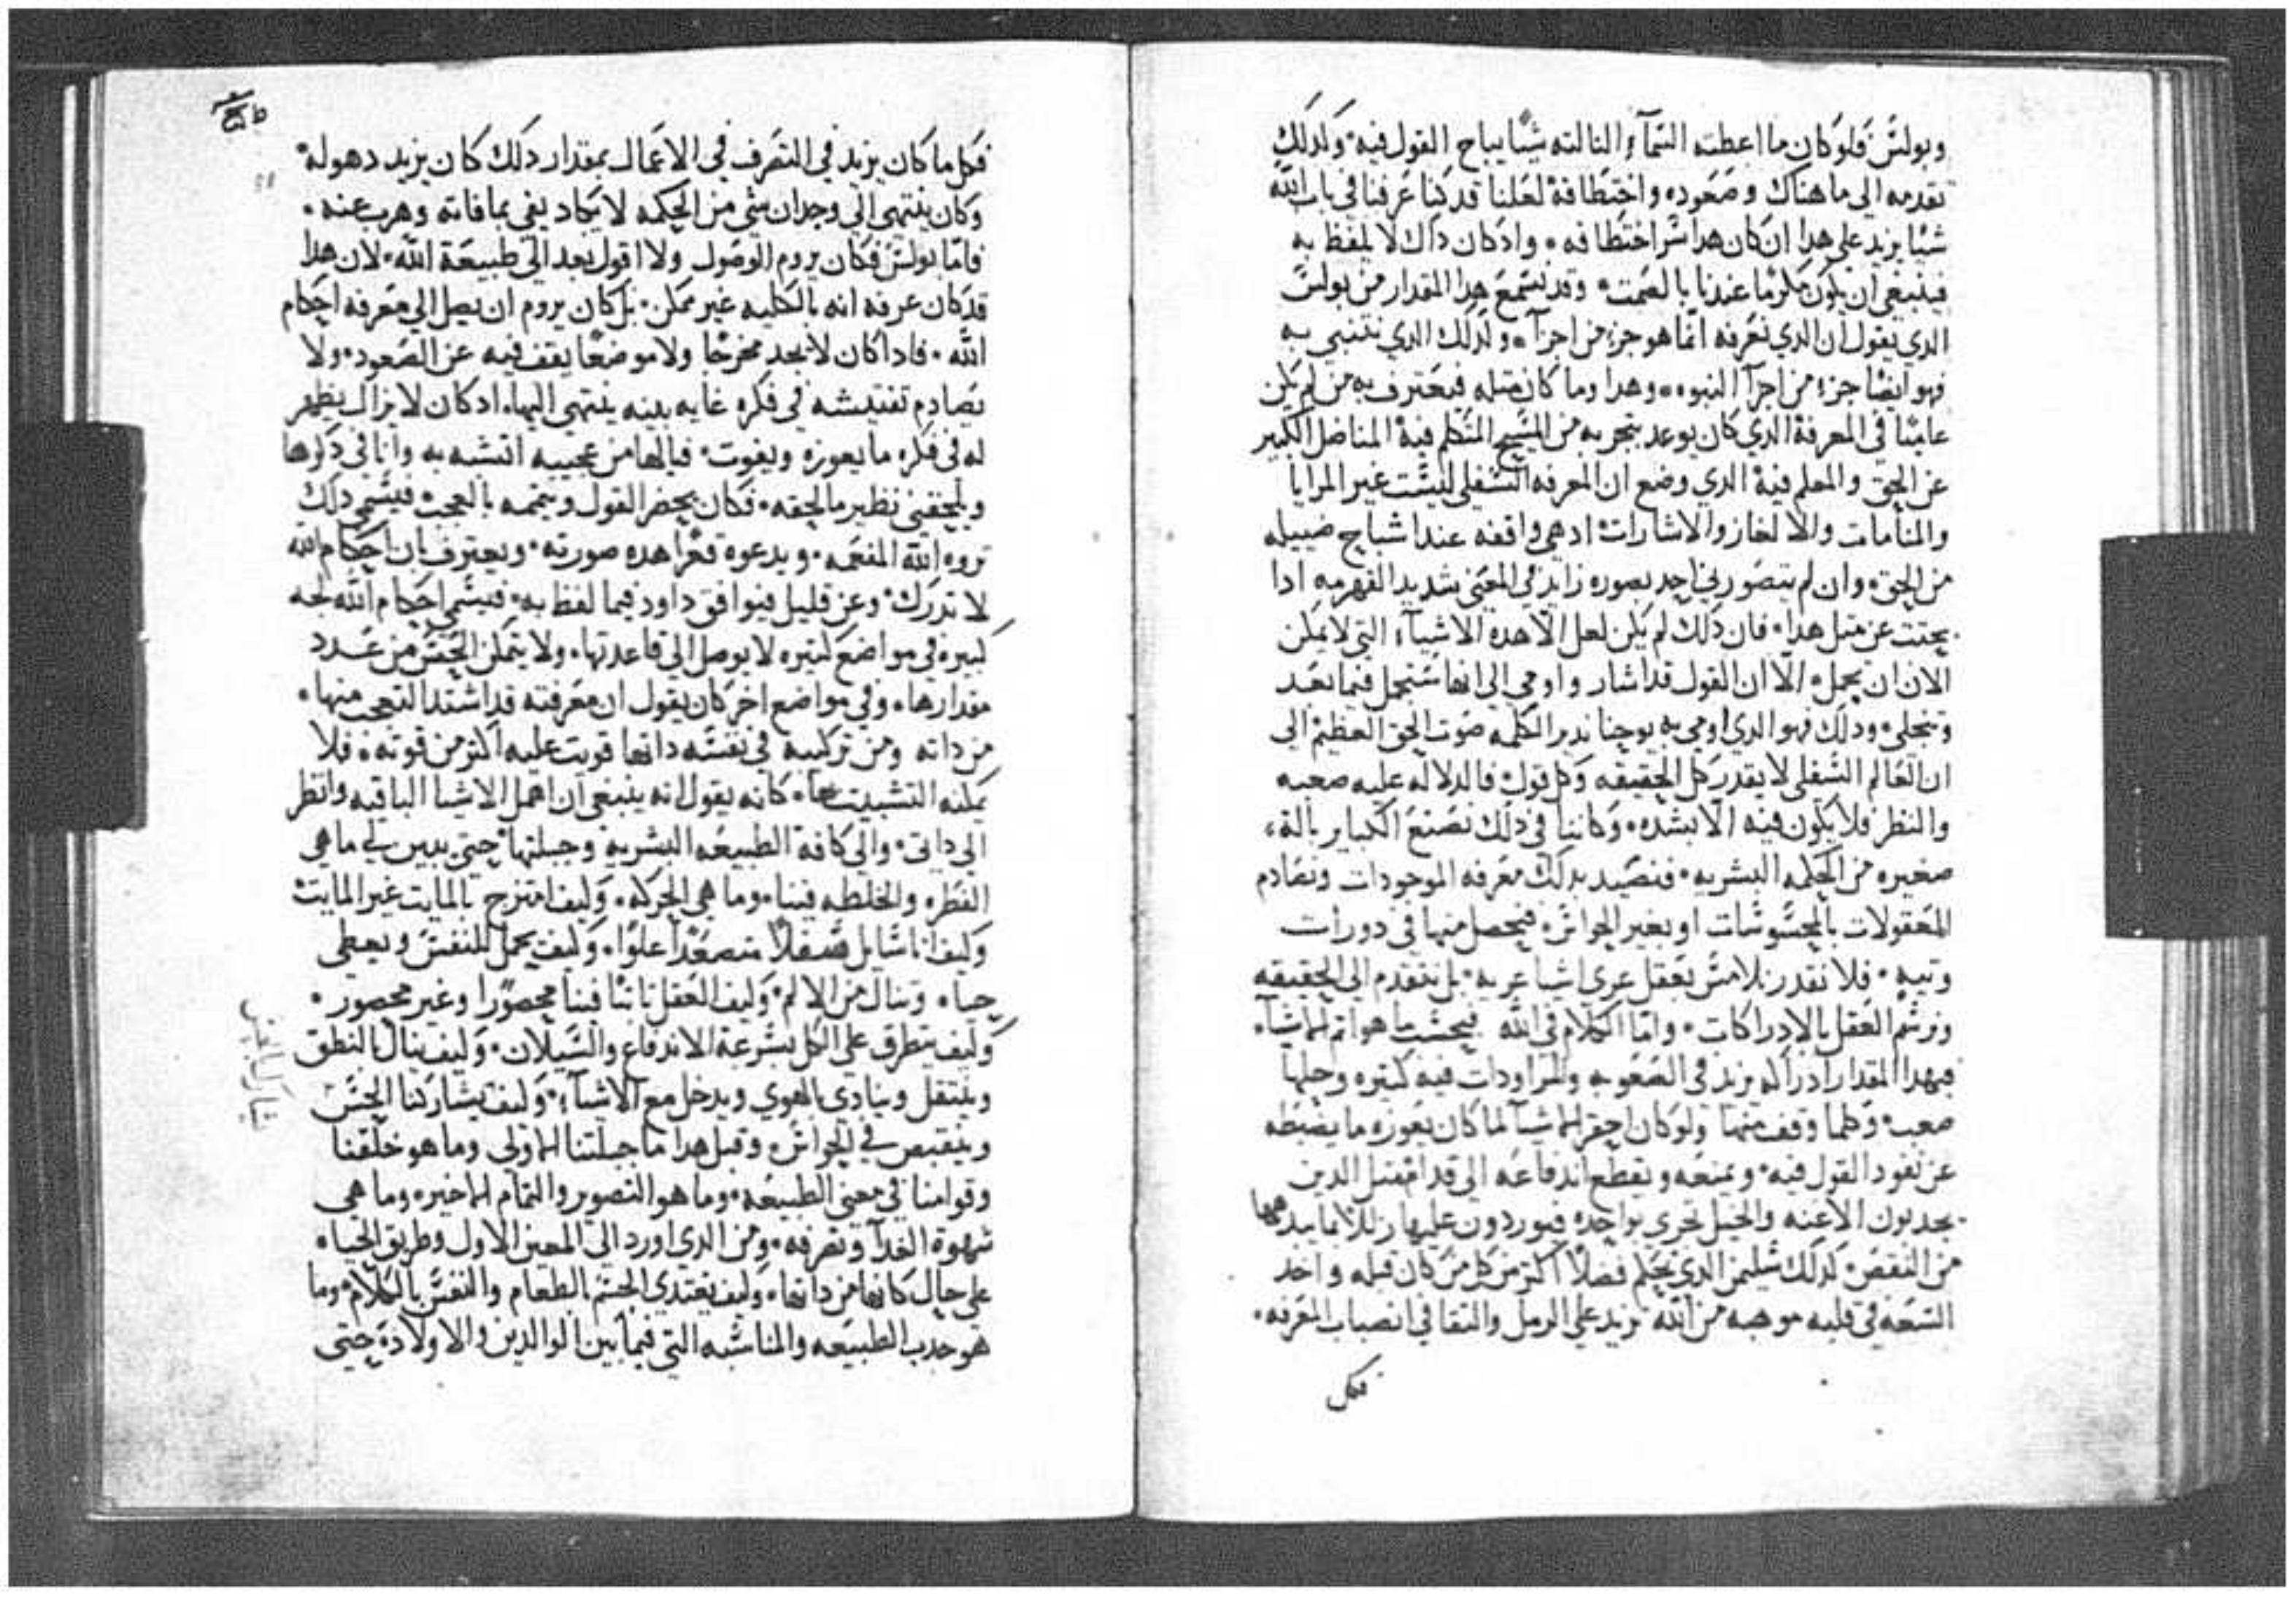 وبولس فلو كان ما اعطته السمآء الثالثه شيًا يباح القول فيه ولدلك
تقدمه الى ما هناك وصعوده واختطافه لعلنا قد كنا عرفنا في باب الله
شيًا يزيد على هدا ان كان هدا سر اختطافه واد كان داك لا يلفظ به
فينبغي ان يكون مكرمًا عندنا بالصمت وقد نسمع هدا المقدار من بولس
الدي يقول ان الدي نعرفه انما هو جزء من اجزآء ولدلك الدي نتنبي به
فهو ايضا جزء من اجزآ النبوه وهدا وما كان مثله فيعترف به من لم يكن
عاميًا في المعرفة الدي كان يوعد بتجربه من المسيح المتكلم فيه المناضل الكبير
عن الحق والمعلم فيه الدي وضع ان المعرفه السفلي ليست غير المرايا
والمنامات والالغاز والاشارات اد هي واقفه عند اشباح ضييله
من الحق وان لم يتصورني احد بصوره زايد في المعنى شديد الفهم به ادا
بحثت عن مثل هدا فان دلك لم يكن لعل الا هده الاشيآء التي لا يمكن
الان ان تحمل الا ان القول قد اشار واومي الى انها ستحمل فيما بعد
وتنجلي ودلك فهو الدي اومي به يوحنا ندير الكلمه صوت الحق العظيم الى
ان العالم السفلي لا يقدر كل الحقيقه وكل قول فالدلاله عليه صعبه
والنظر فلا يكون فيه الا بشده وكاننا في دلك نصنع الكباير بالة
صغيره من الحكمه البشريه فنصيد بدلك معرفه الموجودات ونصادم
المعقولات بالمحسوسات او بغير الحواس فيحصل منها في دورات
وتيه فلا نقدر نلامس بعقل عري اشيا عريه بل نتقدم الى الحقيقه
ونرسم العقل بالادراكات واما الكلام في الله فبحسب ما هو اتم الاشيآء
فبهدا المقدار ادراكه يزيد في الصعوبه والمراودات فيه كثيره وحلها
صعب وكلما وقف منها ولو كان احقر الاشيآ لما كان يعوزه ما يضبطه
عن نفود القول فيه ويمنعه ويقطع اندفاعه الى قدام مثل الدين
يجدبون الاعنه والخيل تجري بواحده فيوردون عليها زللا بما يبدهها
من النقص كدلك سليمن الدي تحكم فضلًا اكثر من كل من كان قبله واخد
السعه في قلبه موهبه من الله تزيد على الرمل والتقا في انصباب المعرفه
فكل
فكل ما كان يزيد في التصرف في الاعمال بمقدار دلك كان يزيد دهوله
وكان ينتهي الى وجدان شي من الحكمه لا يكاد يفي بما فاته وهرب عنه
فاما بولس فكان يروم الوصول ولا اقول بعد الى طبيعة الله لان هدا
قد كان عرفه انه بالكليه غير ممكن بل كان يروم ان يصل الي معرفه احكام
الله فادا كان لا يجد مخرجًا ولا موضعًا يقف فيه عن الصعود ولا
يصادم تفتيشه في فكره غايه بينه ينتهي اليها اد كان لا يزال يظهر
له في فكره ما يعوزه ويفوت فيالها من عجيبه اتشبه به وانا في دكرها
ويلحقني نظير ما لحقه فكان يحضر القول ويتممه بالعجب فيسمي دلك
تروه الله المفعمه ويدعوه قعرًا هده صورته ويعترف بان احكام الله
لا تدرك وعن قليل فيوافق داود فيما لفظ به فيسمي احكام الله لجه
كبيره في مواضع كثيره لا يوصل الى قاعدتها ولا يتمكن الحس من عدد
مقدارها وفي مواضع اخر كان يقول ان معرفته قد اشتد التعجب منها
من داته ومن تركيبه في نفسه دانها قويت عليه اكثر من قوته فلا
يمكنه التشبيت بها كانه يقول انه ينبغي ان اهمل الاشيا الباقيه وانظر
الى داتي والي كافة الطبيعه البشريه وجبلتها حتى يبين لي ما هي
الفطره والخلطه فينا وما هي الحركه وكيف امتزج بالمايت غير المايت
وكيف انا سايل سفلًا متصعدًا علوًا وكيف تحمل النفس ويعطي
حياه وتنال من الالم وكيف العقل ثابتًا فينا محصورًا وغير محصور
وكيف يتطرق على الكل بسرعة الاندفاع والسيلان وكيف ينال بالنطق
وينتقل وينادي بالهوي ويدخل مع الاشيآء وكيف يشاركنا الحس
وينقبص في الحواس وقبل هدا ما جبلتنا الاولى وما هو خلقنا
وقوامنا في معنى الطبيعه وما هو التصوير والتمام الاخير وما هي
شهوة الغدآ وتصرفه ومن الدي اورد الى المعين الاول وطريق الحياه
على حال كانها من داتها وكيف يغتدي الجسم بالطعام والنفس بالكلام وما
هو جدب الطبيعه والمناسبه التي فيما بين الوالدين والاولاد حتى